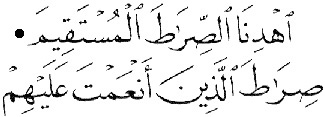 ٱهْدِنَا ٱلصِّرَٰطَ ٱلْمُسْتَقِيمَ •
صِرَٰطَ ٱلَّذِينَ أَنْعَمْتَ عَلَيْهِمْ